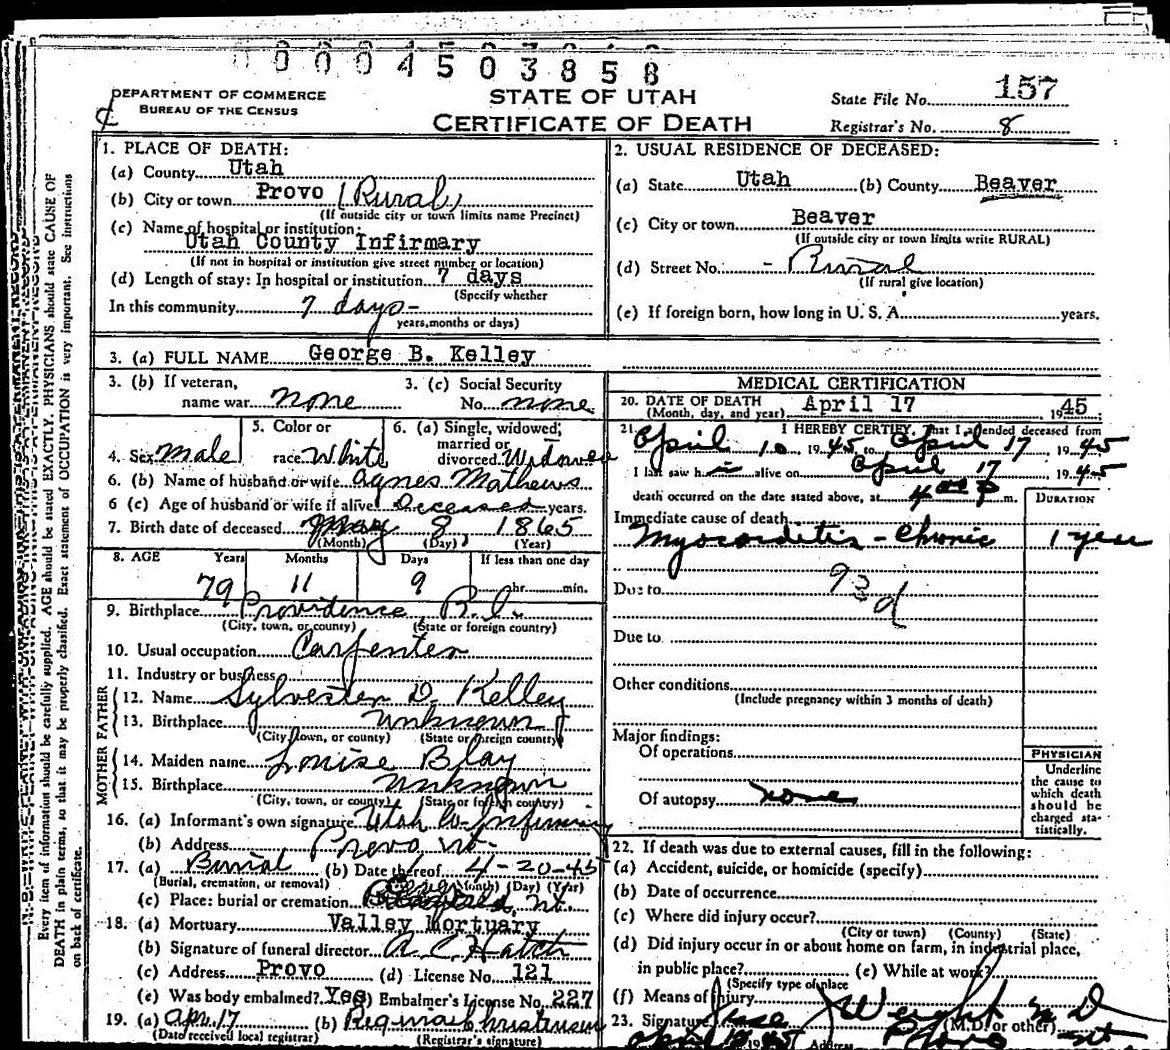 00004503858
DEPARTMENT OF COMMERCE
BUREAU OF THE CENSUS
STATE OF UTAH
CERTIFICATE OF DEATH
State File No. 157
Registrar's No. 8
Every item of information should be carefully supplied. AGE should be stated EXACTLY. PHYSICIANS should state CAUSE OF
DEATH in plain terms, so that it may be properly classified. Exact statement of OCCUPATION is very important. See instructions
on back of certificate.
1. PLACE OF DEATH:
(a) County Utah
(b) City or town Provo (Rural)
(If outside city or town limits name Precinct)
(c) Name of hospital or institution:
Utah County Infirmary
(If not in hospital or institution give street number or location)
(d) Length of stay: In hospital or institution 7 days
(Specify whether
In this community 7 days-
years, months or days)
2. USUAL RESIDENCE OF DECEASED:
(a) State Utah (b) County Beaver
(c) City or town Beaver
(If outside city or town limits write RURAL)
(d) Street No. - Rural
(If rural give location)
(e) If foreign born, how long in U. S. A. years.
3. (a) FULL NAME George B. Kelley
3. (b) If veteran,
name war none
3. (c) Social Security
No. none
4. Sex Male
5. Color or
race White
6. (a) Single, widowed,
married or
divorced Widowed
6. (b) Name of husband or wife Agnes Mathews
6 (c) Age of husband or wife if alive Deceased years.
7. Birth date of deceased May 8, 1865
(Month) (Day) (Year)
8. AGE Years Months Days If less than one day
79 11 9 hr. min.
9. Birthplace Providence, R.I.
(City, town, or county) (State or foreign country)
10. Usual occupation Carpenter
11. Industry or business
FATHER
12. Name Sylvester D. Kelley
13. Birthplace unknown
(City, town, or county) (State or foreign country)
MOTHER
14. Maiden name Louise Blay
15. Birthplace Unknown
(City, town, or county) (State or foreign country)
16. (a) Informant's own signature Utah Co. Infirmary
(b) Address Provo Ut-
17. (a) Burial (b) Date thereof 4-20-45
(Burial, cremation, or removal) (Month) (Day) (Year)
(c) Place: burial or cremation Ut.
18. (a) Mortuary Valley Mortuary
(b) Signature of funeral director A. C. Hatch
(c) Address Provo (d) License No. 121
(e) Was body embalmed? Yes (f) Embalmer's License No. 227
19. (a) Apr. 17 (b) Regina Christensen
(Date received local registrar) (Registrar's signature)
MEDICAL CERTIFICATION
20. DATE OF DEATH
(Month, day, and year) April 17 1945
21. I HEREBY CERTIFY, That I attended deceased from
April 10 1945 to April 17 1945
I last saw him alive on April 17 1945
death occurred on the date stated above, at 4:00 P m.
DURATION
Immediate cause of death
Myocarditis - Chronic 1 year
93 d
Due to
Due to
Other conditions
(Include pregnancy within 3 months of death)
Major findings:
Of operations
Of autopsy none
PHYSICIAN
Underline
the cause to
which death
should be
charged sta-
tistically.
22. If death was due to external causes, fill in the following:
(a) Accident, suicide, or homicide (specify)
(b) Date of occurrence
(c) Where did injury occur?
(City or town) (County) (State)
(d) Did injury occur in or about home on farm, in industrial place,
in public place? (e) While at work?
(Specify type of place
(f) Means of injury
23. Signature Weight M D
(M.D. or other)
April 1945 Address Provo Ut